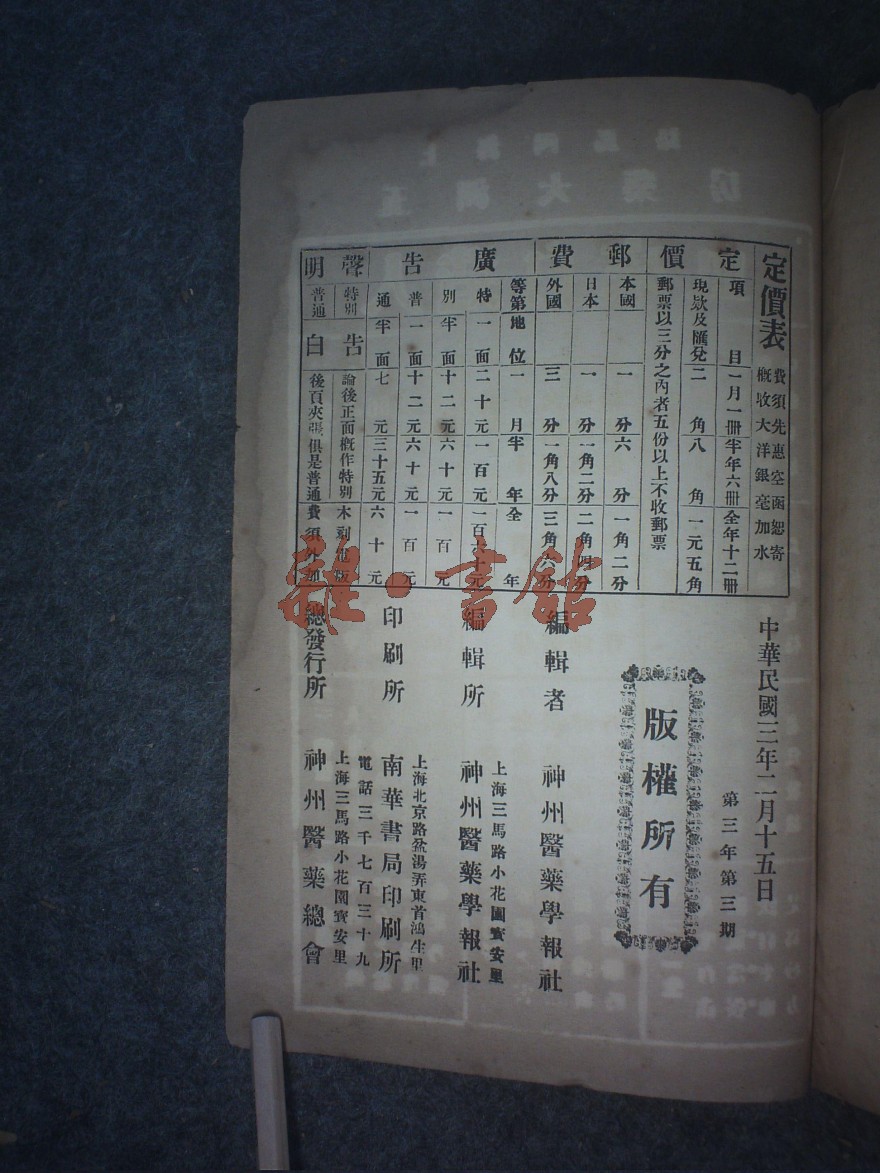 定價表
費須先惠空函恕寄
概收大洋銀毫加水
定價
項目 一月一冊 半年六冊 全年十二冊
現欵及匯兌 二角 八角 一元五角
郵票以三分之內者五份以上不收郵票
郵費
本國 一分 六分 一角二分
日本 一分 一角二分 二角四分
外國 三分 一角八分 三角六分
廣告
等第 地位 一月 半年 全年
特別 一面 二十元 一百元
半面 十二元 六十元 一百元
普通 一面 十二元 六十元 一百元
半面 七元 三十五元 六十元
聲明
特別 告白 論後正面概作特別 木刻電版
普通 後頁夾張俱是普通 費須外加
中華民國三年二月十五日
第三年第三期
版權所有
編輯者 神州醫藥學報社
編輯所 上海三馬路小花園寶安里
神州醫藥學報社
印刷所 上海北京路盆湯弄東首鴻生里
南華書局印刷所
電話三千七百三十九
總發行所 上海三馬路小花園寶安里
神州醫藥總會
雜·書館